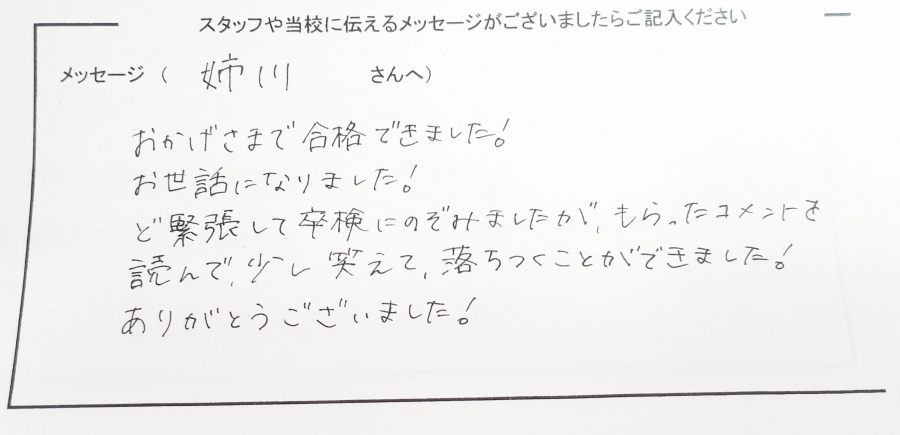 スタッフや当校に伝えるメッセージがございましたらご記入ください
メッセージ（ 姉川 さんへ）
おかげさまで合格できました!
お世話になりました!
ど緊張して卒検にのぞみましたが、もらったコメントを
読んで、少し笑えて、落ちつくことができました!
ありがとうございました!